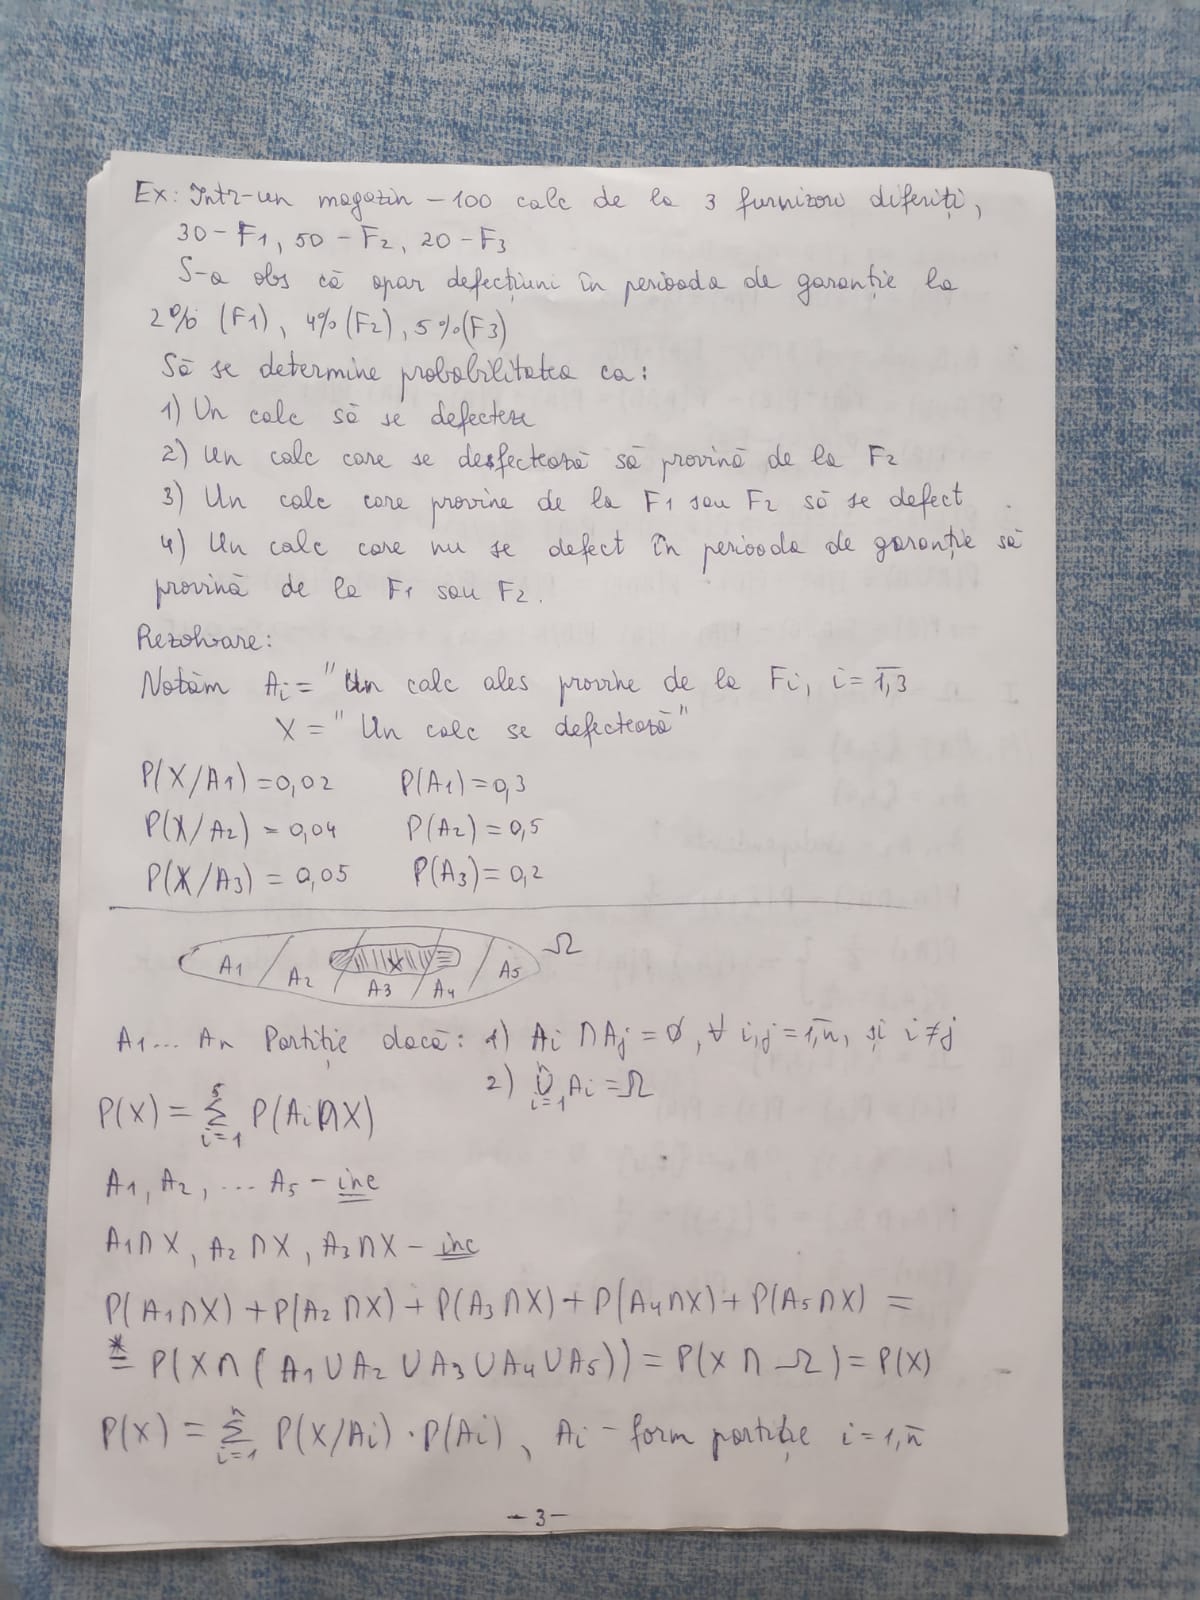 Ex: Într-un magazin – 100 calc de la 3 furnizori diferiți,
30 – F1, 50 – F2, 20 – F3
S-a obs că apar defecțiuni în perioada de garanție la
2% (F1), 4% (F2), 5% (F3)
Să se determine probabilitatea ca:
1) Un calc să se defecteze
2) Un calc care se desfectează să provină de la F2
3) Un calc care provine de la F1 sau F2 să se defect
4) Un calc care nu se defect în perioada de garanție să
provină de la F1 sau F2.
Rezolvare:
Notăm Ai = "Un calc ales provine de la Fi, i = 1,3
X = "Un calc se defectează"
P(X/A1) = 0,02 P(A1) = 0,3
P(X/A2) = 0,04 P(A2) = 0,5
P(X/A3) = 0,05 P(A3) = 0,2
A1 A2 A3 X A4 A5 Ω
A1... An Partiție dacă: 1) Ai ∩ Aj = ∅, ∀ i,j = 1,n, și i ≠ j
2) n ∪ i=1 Ai = Ω
P(X) = 5 Σ i=1 P(Ai ∩ X)
A1, A2, ... A5 – inc
A1 ∩ X, A2 ∩ X, A3 ∩ X – inc
P(A1 ∩ X) + P(A2 ∩ X) + P(A3 ∩ X) + P(A4 ∩ X) + P(A5 ∩ X) =
*= P(X ∩ (A1 ∪ A2 ∪ A3 ∪ A4 ∪ A5)) = P(X ∩ Ω) = P(X)
P(X) = n Σ i=1 P(X/Ai) · P(Ai), Ai – form partiție i = 1,n
– 3 –